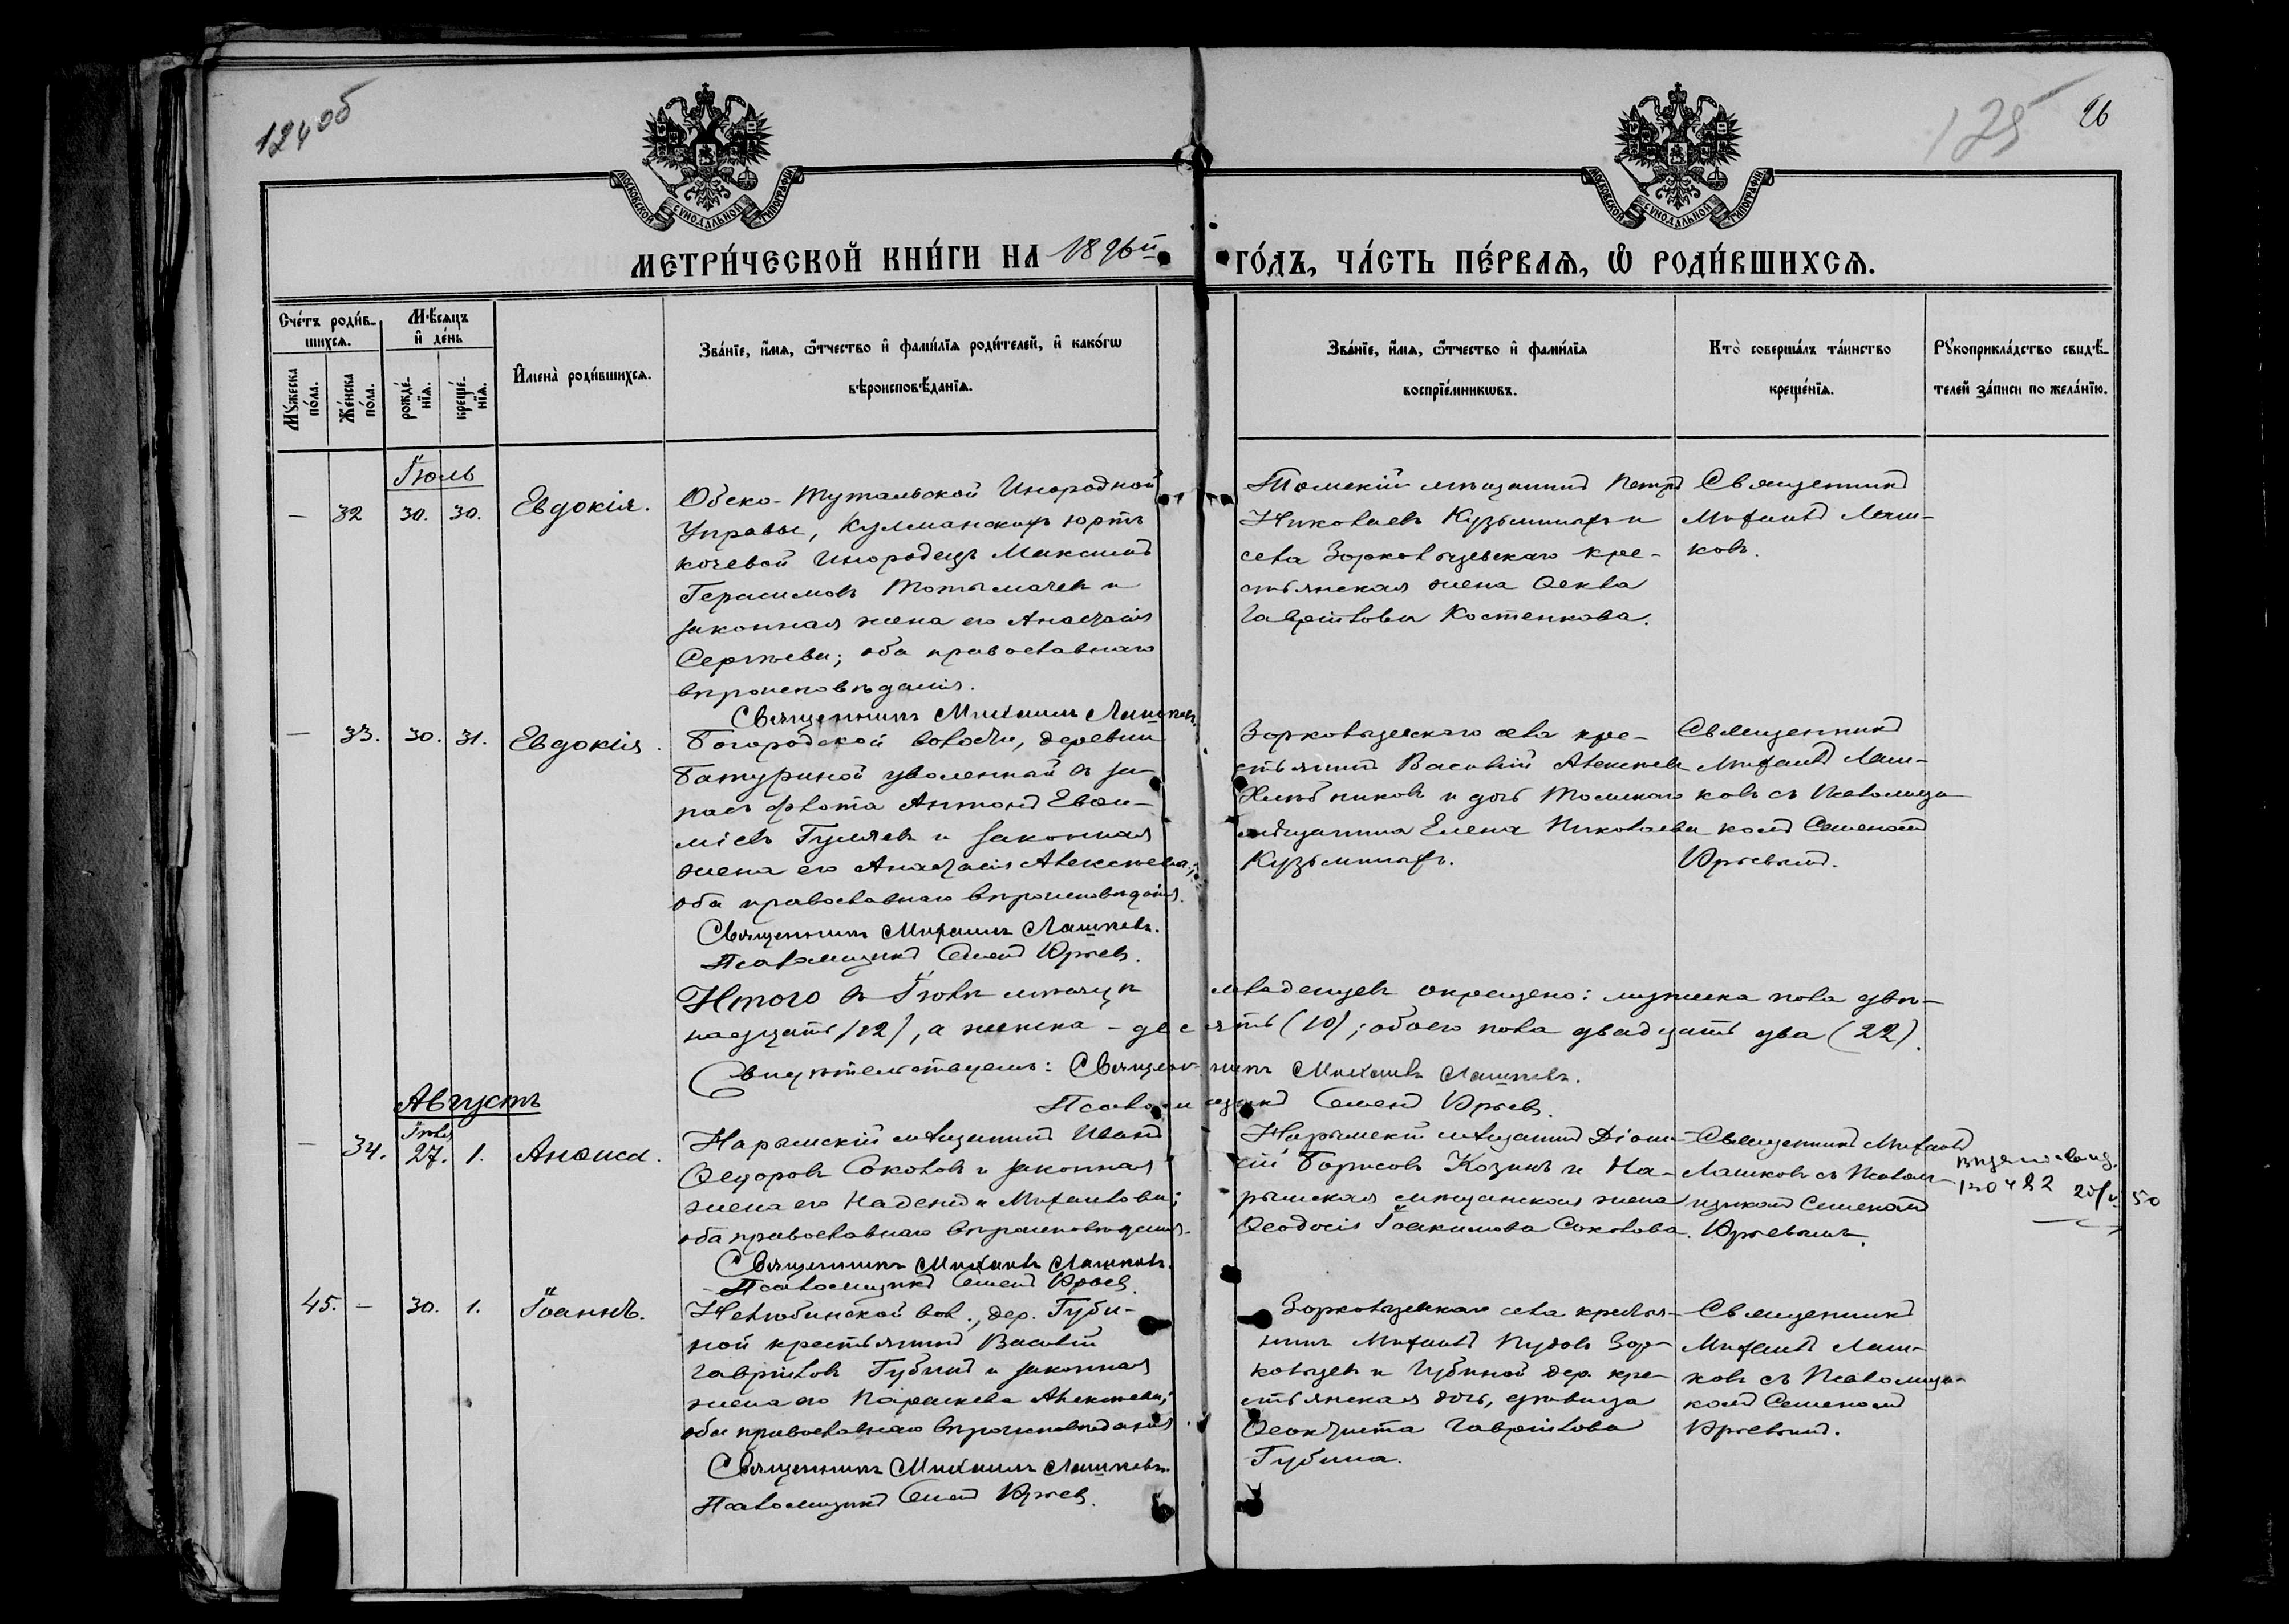 124 об
125
26
МОСКОВСКОЙ СѴНОДАЛЬНОЙ ТИПОГРАФІИ
МОСКОВСКОЙ СѴНОДАЛЬНОЙ ТИПОГРАФІИ
МЕТРИ́ЧЕСКОЙ КНИ́ГИ НА 1896й
ГО́ДЪ, ЧА́СТЬ ПЕ́РВАЯ, Ѡ РОДИ́ВШИХСЯ.
Сче́тъ роди́в-
шихся.
Мѣ́сяцъ
и де́нь
Му́жеска
по́ла.
Же́нска
по́ла.
рожде́-
нїя.
креще́-
нїя.
Имена̀ роди́вшихся.
Зва́нїе, и́мя, ѻ́тчество и фами́лїя роди́телей, и како́гѡ
вѣроисповѣ́данїя.
Зва́нїе, и́мя, ѻ́тчество и фами́лїя
воспрїе́мникѡвъ.
Кто̀ соверша́лъ та́инство
креще́нїя.
Рꙋкоприкла́дство свидѣ́-
телей за́писи по жела́нїю.
Іюль
— 32 30. 30. Евдокія.
Обско-Тутальской Инородной
Управы, Кулманскихъ юртъ
кочевой инородецъ Максимъ
Герасимовъ Тотымачевъ и
законная жена его Анастасія
Сергѣева; оба православнаго
вѣроисповѣданія.
Священникъ Михаилъ Лашковъ.
Томскій мѣщанинъ Петръ
Николаевъ Кузьминыхъ и
села Зоркольцевскаго кре-
стьянская жена Ѳекла
Гаврилова Костенкова.
Священникъ
Михаилъ Лаш-
ковъ.
— 33. 30. 31. Евдокія.
Богородской волости, деревни
Батуриной уволенный въ за-
пасъ флота Антонъ Евѳи-
міевъ Гуляевъ и законная
жена его Анастасія Алексѣева;
оба православнаго вѣроисповѣданія.
Священникъ Михаилъ Лашковъ.
Псаломщикъ Семенъ Юрьевъ.
Зоркольцевскаго села кре-
стьянинъ Василій Алексѣевъ
Хлѣбниковъ и дочь Томскаго
мѣщанина Елена Николаева
Кузьминыхъ.
Священникъ
Михаилъ Лаш-
ковъ съ Псаломщи-
комъ Семеномъ
Юрьевымъ.
Итого въ Іюлѣ мѣсяцѣ младенцевъ окрещено: мужска пола двѣ-
надцать (12), а женска - десять (10); обоего пола двадцать два (22).
Свидѣтельствуемъ: Священникъ Михаилъ Лашковъ.
Псаломщикъ Семенъ Юрьевъ.
Августъ
Іюля
— 34. 27. 1. Анѳиса.
Нарымскій мѣщанинъ Иванъ
Ѳедоровъ Соколовъ и законная
жена его Надежда Михаилова;
оба православнаго вѣроисповѣданія.
Священникъ Михаилъ Лашковъ.
Псаломщикъ Семенъ Юрьевъ.
Нарымскій мѣщанинъ Діони-
сій Борисовъ Козинъ и На-
рымская мѣщанская жена
Ѳеодосія Іоакимова Соколова.
Священникъ Михаилъ
Лашковъ съ Псалом-
щикомъ Семеномъ
Юрьевымъ.
50
45. — 30. 1. Іоаннъ.
Нелюбинской вол., дер. Губи-
ной крестьянинъ Василій
Гавриловъ Губинъ и законная
жена его Параскева Алексѣева;
оба православнаго вѣроисповѣданія
Священникъ Михаилъ Лашковъ.
Псаломщикъ Семенъ Юрьевъ.
Зоркольцевскаго села крестья-
нинъ Михаилъ Пудовъ Зор-
кольцевъ и Губиной дер. кре-
стьянская дочь, дѣвица
Ѳеоктиста Гаврилова
Губина.
Священникъ
Михаилъ Лаш-
ковъ съ Псаломщи-
комъ Семеномъ
Юрьевымъ.